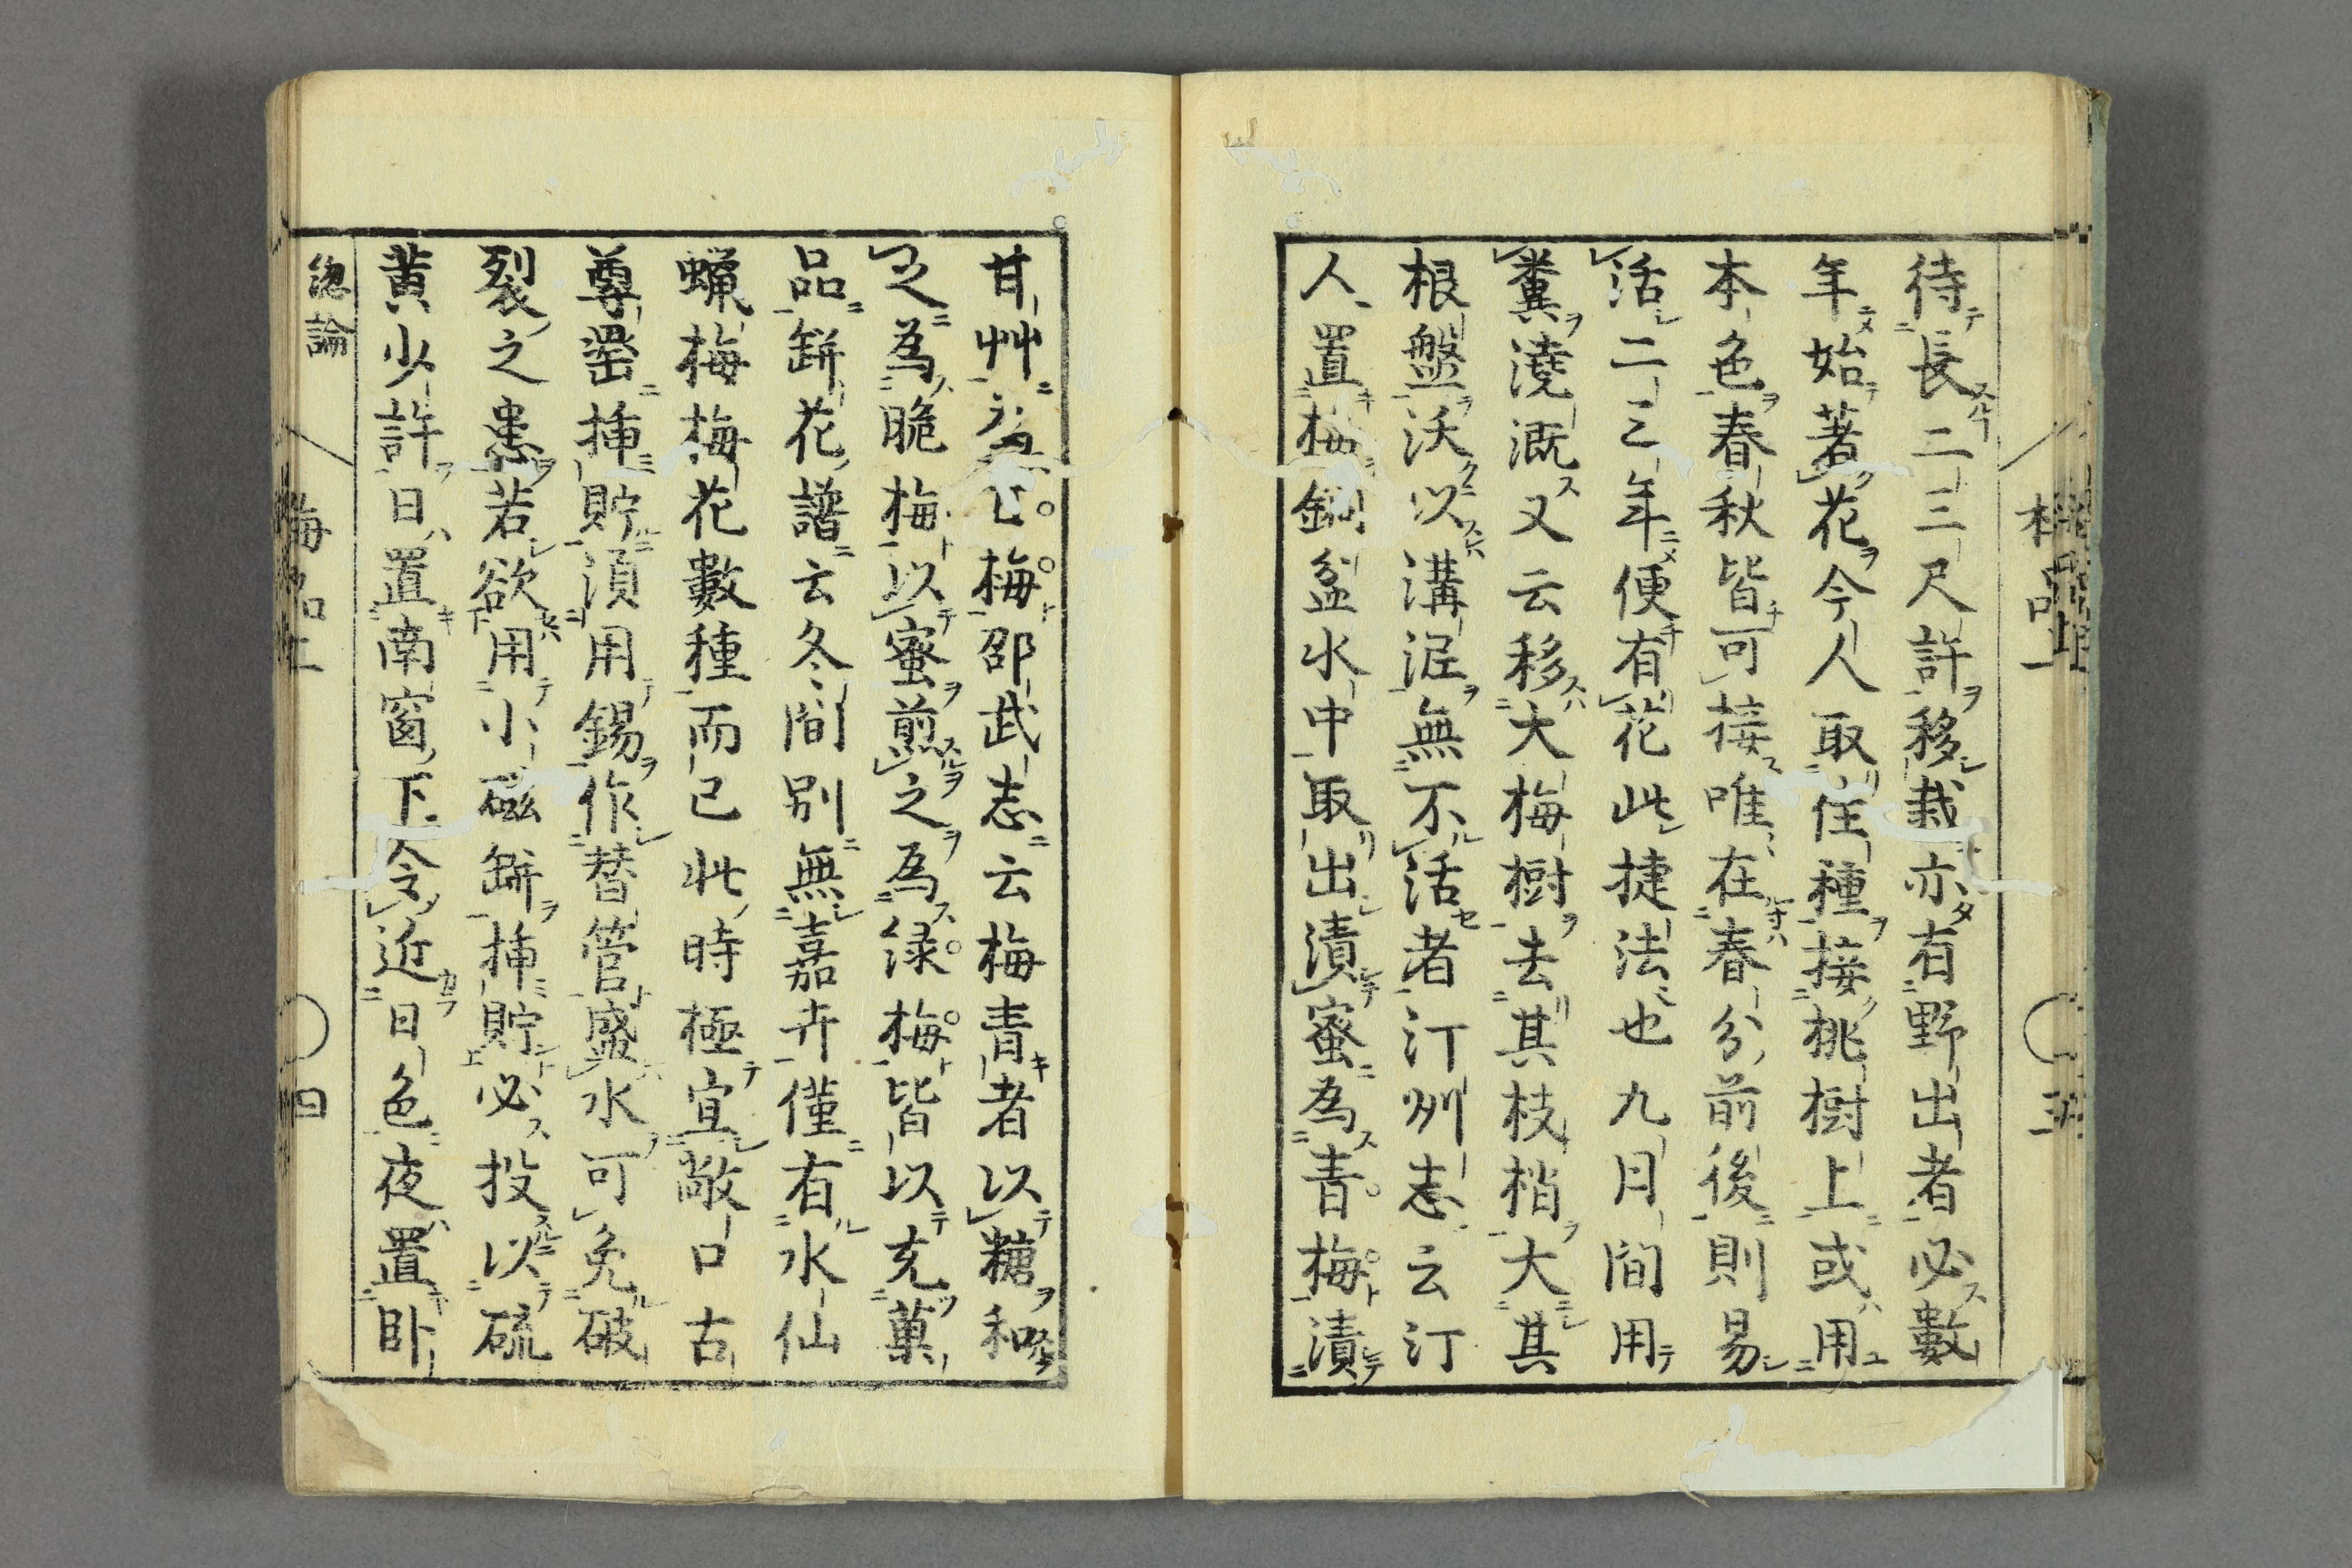 待長二三尺許移栽亦有野出者必數
年始著花今人取佳種接桃樹上或用
本色春秋皆可接唯在春分前後則易
活二三年便有花此捷法也九月間用
糞澆漑又云移大梅樹去其枝梢大其
根盤沃以溝泥無不活者汀州志云汀
人置梅銅盆水中取出漬蜜為青梅漬
甘艸梅邵武志云梅青者以糖和
之為脆梅以蜜煎之為緑梅皆以充菓
品缾花譜云冬間別無嘉卉僅有水仙
蠟梅梅花數種而已此時極宜敞口古
尊罍挿貯須用錫作替管盛水可免破
裂之患若欲用小磁缾挿貯必投以硫
黄少許日置南窗下令近日色夜置臥
總論
梅品上
四